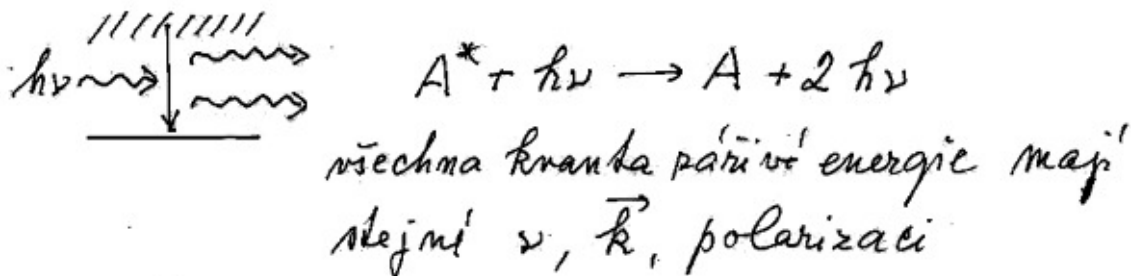 hν
A* + hν → A + 2 hν
všechna kvanta zářivé energie mají
stejné ν, k⃗, polarizaci